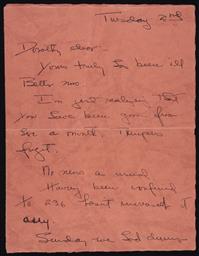 Tuesday 2nd
Dorothy dear -
Yours truly has been ill
Better now
I'm just realizing that
you have been gone from
for a month
forgot.
No news as usual
Having been confined
to 236 haven't
any.
Sunday we had dinner